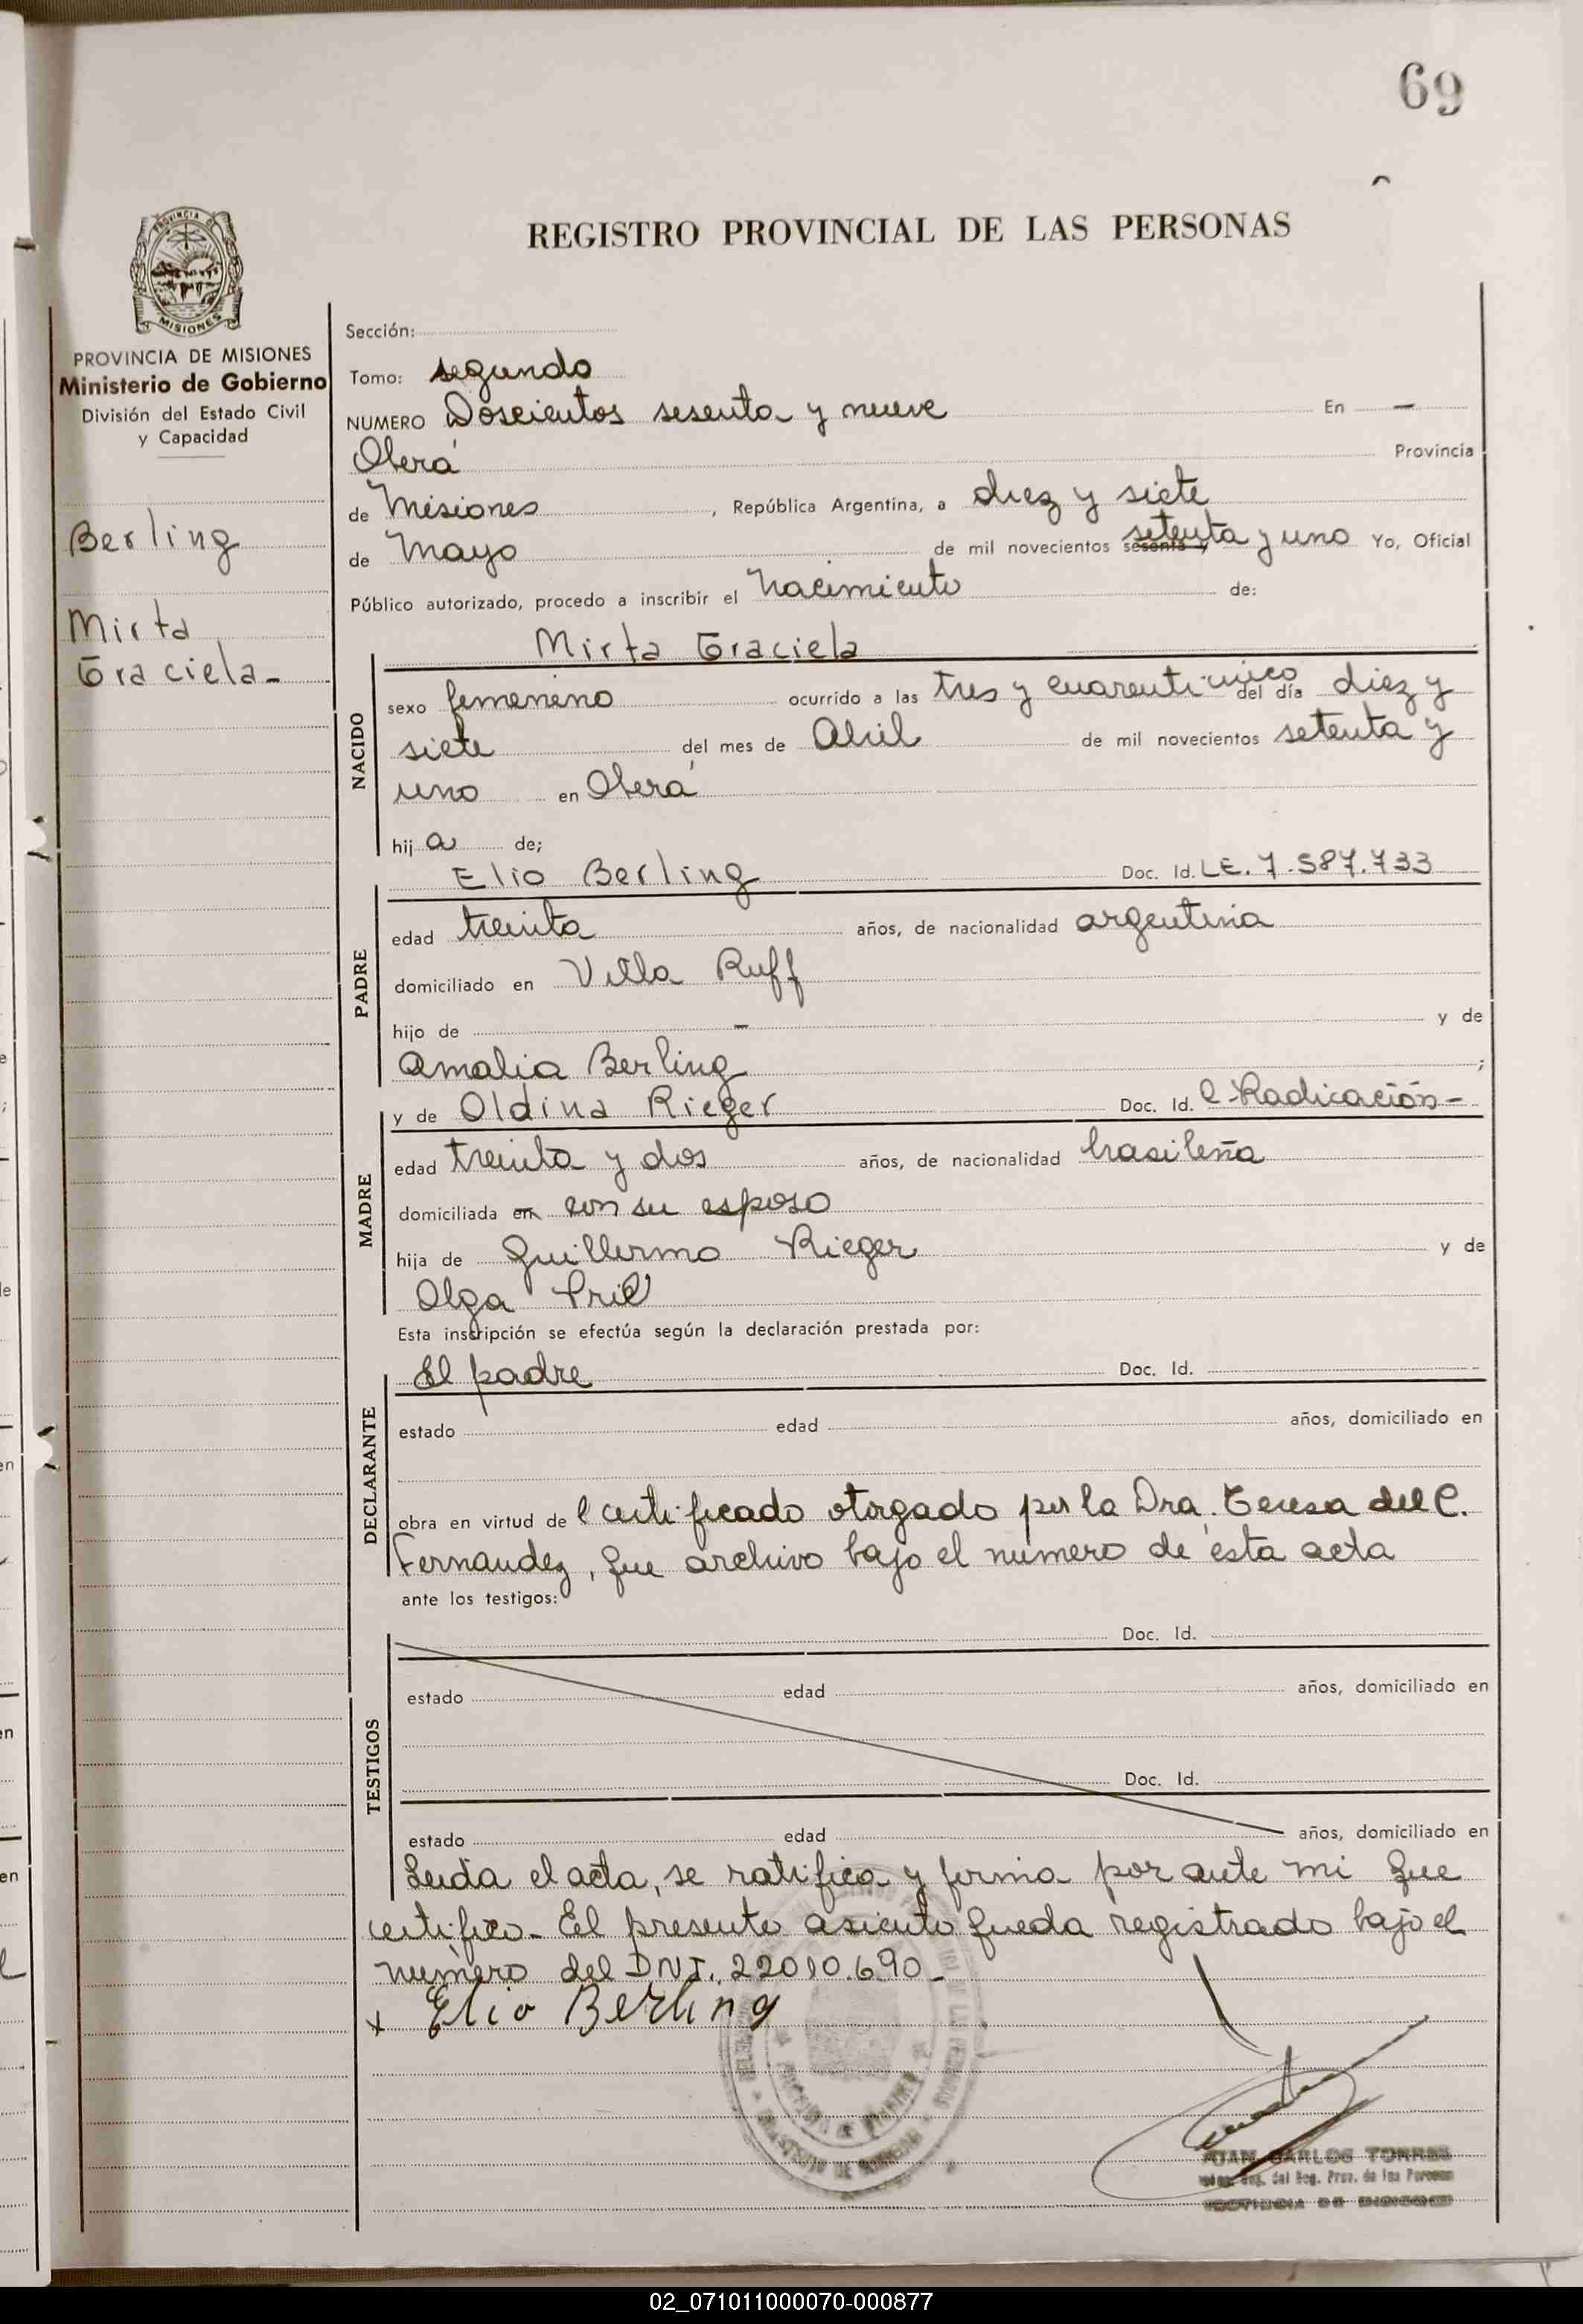 69
REGISTRO PROVINCIAL DE LAS PERSONAS
PROVINCIA DE
MISIONES
PROVINCIA DE MISIONES
Ministerio de Gobierno
División del Estado Civil
y Capacidad
Berling
Mirta
Graciela-
Sección:
Tomo: segundo
NUMERO Doscientos sesenta y nueve En -
Oberá Provincia
de Misiones, República Argentina, a diez y siete
de Mayo de mil novecientos sesenta y setenta y uno Yo, Oficial
Público autorizado, procedo a inscribir el Nacimiento de:
Mirta Graciela
NACIDO
sexo femenino ocurrido a las tres y cuarenticinco del día diez y
siete del mes de Abril de mil novecientos setenta y
uno en Oberá
hij a de;
Elio Berling Doc. Id. LE. 7.587.733
PADRE
edad treinta años, de nacionalidad argentina
domiciliado en Villa Ruff
hijo de - y de
Amalia Berling ;
y de Oldina Rieger Doc. Id. C. Radicación-
MADRE
edad treinta y dos años, de nacionalidad brasileña
domiciliada en con su esposo
hija de Guillermo Rieger y de
Olga
Esta inscripción se efectúa según la declaración prestada por:
El padre Doc. Id.
DECLARANTE
estado edad años, domiciliado en
obra en virtud del certificado otorgado por la Dra. Teresa del C.
Fernandez, que archivo bajo el número de ésta acta
ante los testigos:
Doc. Id.
TESTIGOS
estado edad años, domiciliado en
Doc. Id.
estado edad años, domiciliado en
Leida el acta, se ratifica y firma por ante mi que
certifico. El presente asiento queda registrado bajo el
número del DNI. 22010.690-
x Elio Berling
JUAN CARLOS TORRES
del Reg. Prov. de las Personas
02_071011000070-000877